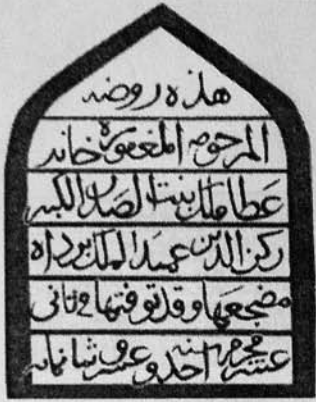 هذه روضه
المرحومه المغفوره خاند
عطا ملك بنت الصدر الكبير
ركن الدين عميد الملك برد الله
مضجعها وقد توفيتها في ثانى
عشر محرم سنه احدى وعشر وثمانمايه